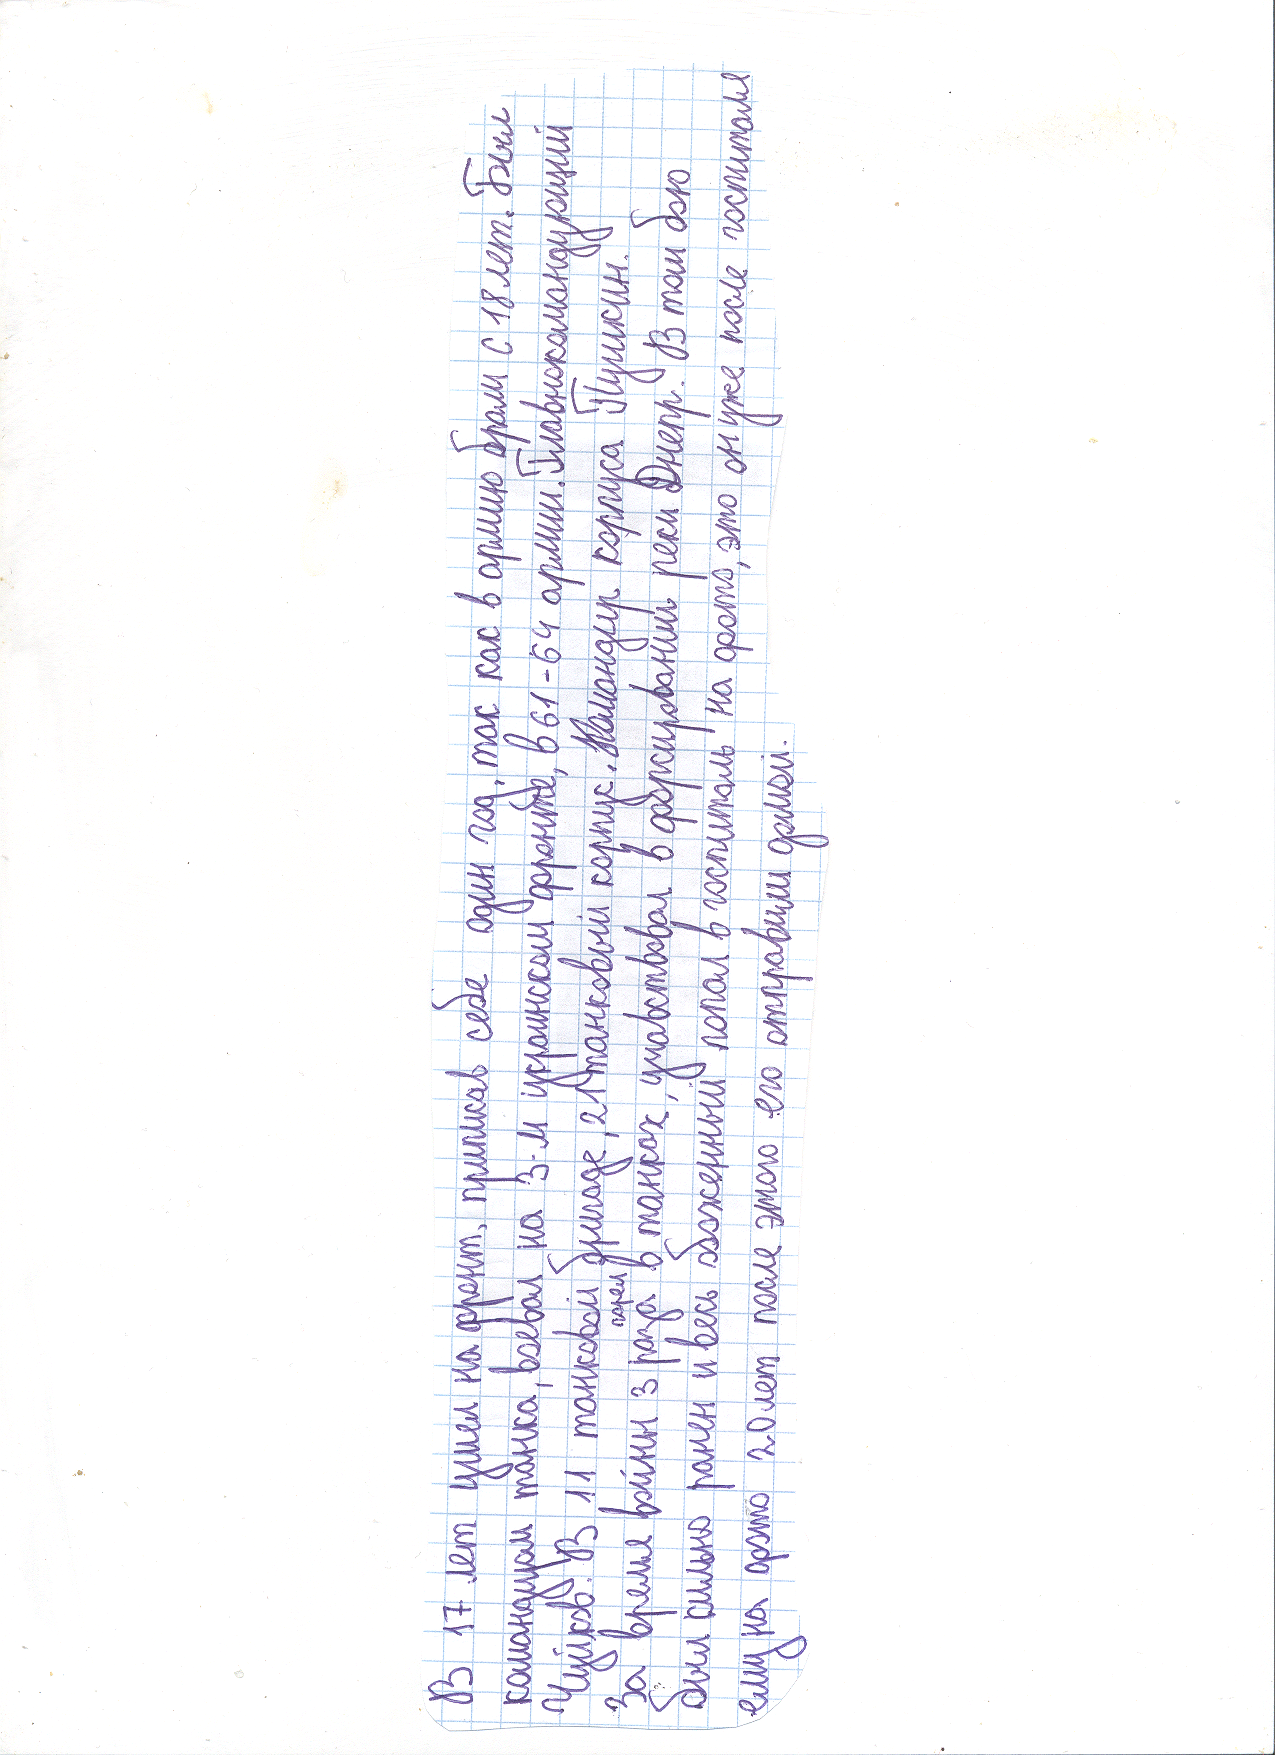 В 17 лет ушел на фронт, приписав себе один год, так как в армию брали с 18 лет. Был
командиром танка, воевал на 3-м украинском фронте, в 61-64 армии. Главнокомандующий
Чуйков. В 11 танковой бригаде, 21 танковый корпус. Командир корпуса Пушкин.
За время войны 3 раза горел в танках, учавствовал в форсировании реки Днепр. В том бою
был сильно ранен и весь обоженный попал в госпиталь на фото, это он уже после госпиталя
ему на фото 20 лет после этого его отправили домой.